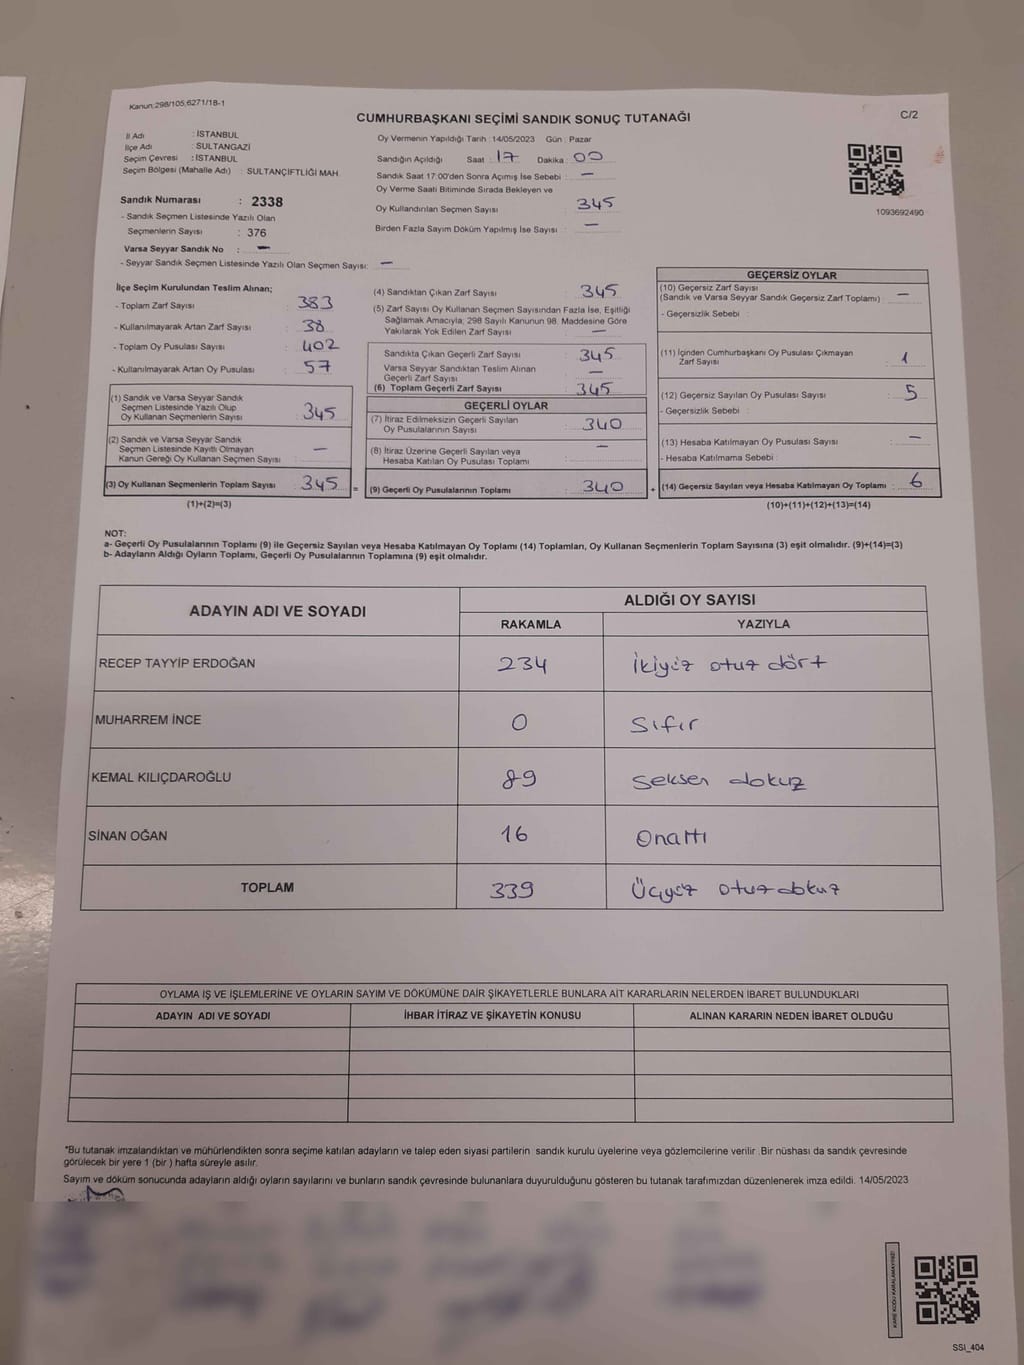 Kanun:298/105,6271/18-1
CUMHURBAŞKANI SEÇİMİ SANDIK SONUÇ TUTANAĞI
C/2
İl Adı : İSTANBUL
İlçe Adı : SULTANGAZİ
Seçim Çevresi : İSTANBUL
Seçim Bölgesi (Mahalle Adı) : SULTANÇİFTLİĞİ MAH.
Sandık Numarası : 2338
- Sandık Seçmen Listesinde Yazılı Olan
Seçmenlerin Sayısı : 376
Varsa Seyyar Sandık No : —
- Seyyar Sandık Seçmen Listesinde Yazılı Olan Seçmen Sayısı: —
Oy Vermenin Yapıldığı Tarih : 14/05/2023 Gün : Pazar
Sandığın Açıldığı Saat : 17 Dakika : 00
Sandık Saat 17:00'den Sonra Açımış İse Sebebi : —
Oy Verme Saati Bitiminde Sırada Bekleyen ve
Oy Kullandırılan Seçmen Sayısı : 345
Birden Fazla Sayım Döküm Yapılmış İse Sayısı : —
1093692490
İlçe Seçim Kurulundan Teslim Alınan;
- Toplam Zarf Sayısı : 383
- Kullanılmayarak Artan Zarf Sayısı : 38
- Toplam Oy Pusulası Sayısı : 402
- Kullanılmayarak Artan Oy Pusulası : 57
(1) Sandık ve Varsa Seyyar Sandık
Seçmen Listesinde Yazılı Olup
Oy Kullanan Seçmenlerin Sayısı : 345
(2) Sandık ve Varsa Seyyar Sandık
Seçmen Listesinde Kayıtlı Olmayan
Kanun Gereği Oy Kullanan Seçmen Sayısı : —
(3) Oy Kullanan Seçmenlerin Toplam Sayısı : 345
(1)+(2)=(3)
=
(4) Sandıktan Çıkan Zarf Sayısı : 345
(5) Zarf Sayısı Oy Kullanan Seçmen Sayısından Fazla İse, Eşitliği
Sağlamak Amacıyla; 298 Sayılı Kanunun 98. Maddesine Göre
Yakılarak Yok Edilen Zarf Sayısı : —
Sandıkta Çıkan Geçerli Zarf Sayısı : 345
Varsa Seyyar Sandıktan Teslim Alınan
Geçerli Zarf Sayısı : —
(6) Toplam Geçerli Zarf Sayısı : 345
GEÇERLİ OYLAR
(7) İtiraz Edilmeksizin Geçerli Sayılan
Oy Pusulalarının Sayısı : 340
(8) İtiraz Üzerine Geçerli Sayılan veya
Hesaba Katılan Oy Pusulası Toplamı : —
(9) Geçerli Oy Pusulalarının Toplamı : 340
+
GEÇERSİZ OYLAR
(10) Geçersiz Zarf Sayısı
(Sandık ve Varsa Seyyar Sandık Geçersiz Zarf Toplamı) : —
- Geçersizlik Sebebi :
(11) İçinden Cumhurbaşkanı Oy Pusulası Çıkmayan
Zarf Sayısı : 1
(12) Geçersiz Sayılan Oy Pusulası Sayısı : 5
- Geçersizlik Sebebi :
(13) Hesaba Katılmayan Oy Pusulası Sayısı : —
- Hesaba Katılmama Sebebi :
(14) Geçersiz Sayılan veya Hesaba Katılmayan Oy Toplamı : 6
(10)+(11)+(12)+(13)=(14)
NOT:
a- Geçerli Oy Pusulalarının Toplamı (9) ile Geçersiz Sayılan veya Hesaba Katılmayan Oy Toplamı (14) Toplamları, Oy Kullanan Seçmenlerin Toplam Sayısına (3) eşit olmalıdır. (9)+(14)=(3)
b- Adayların Aldığı Oyların Toplamı, Geçerli Oy Pusulalarının Toplamına (9) eşit olmalıdır.
ADAYIN ADI VE SOYADI
ALDIĞI OY SAYISI
RAKAMLA YAZIYLA
RECEP TAYYİP ERDOĞAN 234 İkiyüz otuz dört
MUHARREM İNCE 0 Sıfır
KEMAL KILIÇDAROĞLU 89 Seksen dokuz
SİNAN OĞAN 16 Onaltı
TOPLAM 339 Üçyüz otuz dokuz
OYLAMA İŞ VE İŞLEMLERİNE VE OYLARIN SAYIM VE DÖKÜMÜNE DAİR ŞİKAYETLERLE BUNLARA AİT KARARLARIN NELERDEN İBARET BULUNDUKLARI
ADAYIN ADI VE SOYADI İHBAR İTİRAZ VE ŞİKAYETİN KONUSU ALINAN KARARIN NEDEN İBARET OLDUĞU
*Bu tutanak imzalandıktan ve mühürlendikten sonra seçime katılan adayların ve talep eden siyasi partilerin sandık kurulu üyelerine veya gözlemcilerine verilir .Bir nüshası da sandık çevresinde
görülecek bir yere 1 (bir ) hafta süreyle asılır.
Sayım ve döküm sonucunda adayların aldığı oyların sayılarını ve bunların sandık çevresinde bulunanlara duyurulduğunu gösteren bu tutanak tarafımızdan düzenlenerek imza edildi. 14/05/2023
KARE KODU KARALAMAYINIZ!
SSİ_404